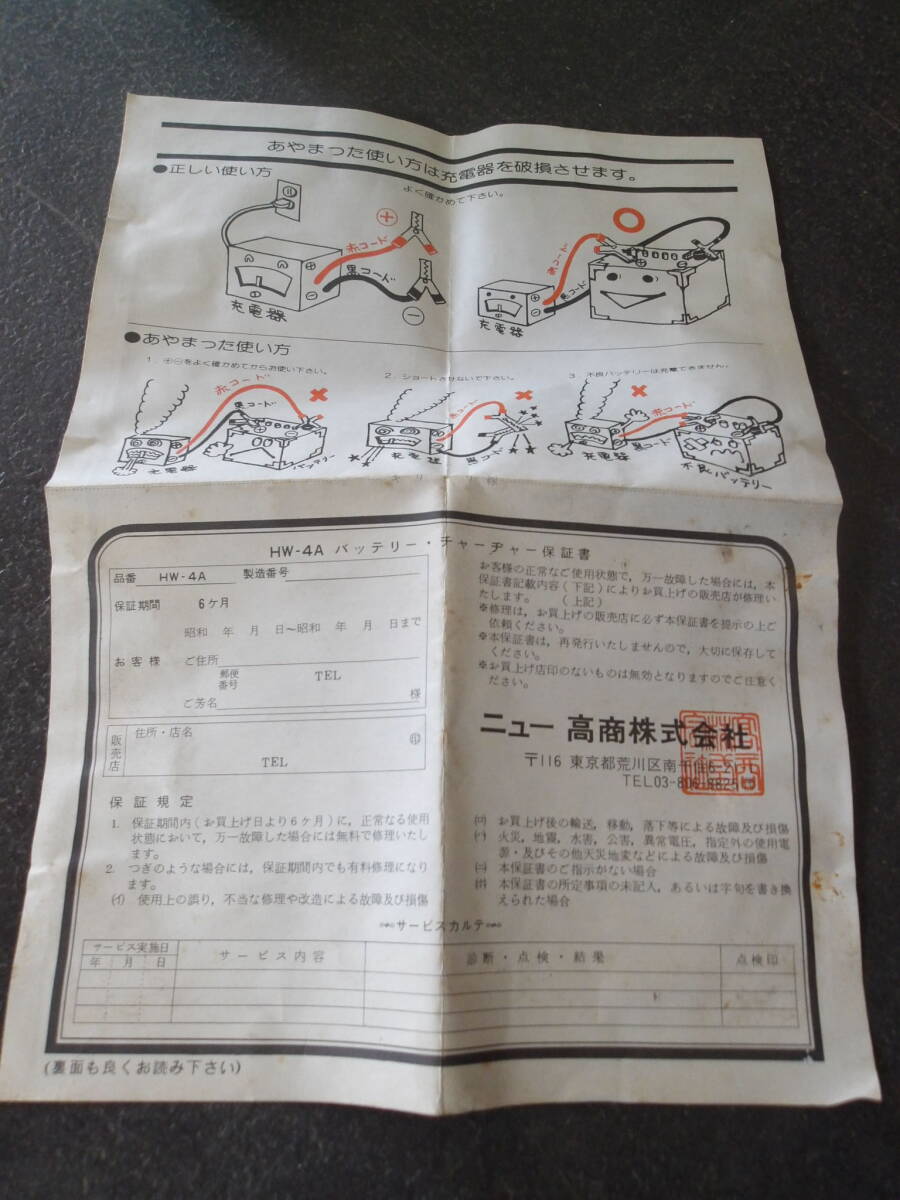 あやまった使い方は充電器を破損させます。
●正しい使い方
よく確かめて下さい。
⊕
赤コード
黒コード
⊖
充電器
赤コード
黒コード
充電器
●あやまった使い方
1. ⊕⊖をよく確かめてからお使い下さい。
赤コード
黒コード
充電器
バッテリー
2. ショートさせないで下さい。
赤コード
充電器
黒コード
3. 不良バッテリーは充電できません。
赤コード
黒コード
充電器
不良バッテリー
HW-4A バッテリー・チャーヂャー保証書
品番 HW-4A 製造番号
保証期間 6ケ月
昭和 年 月 日〜昭和 年 月 日まで
お客様 ご住所
郵便番号 TEL
ご芳名 様
販売店
住所・店名
印
TEL
お客様の正常なご使用状態で，万一故障した場合には，本
保証書記載内容（下記）によりお買上げの販売店が修理い
たします。（上記）
※修理は，お買上げの販売店に必ず本保証書を提示の上ご
依頼ください。
※本保証書は，再発行いたしませんので，大切に保存して
ください。
※お買上げ店印のないものは無効となりますのでご注意く
ださい。
ニュー 高商株式会社
〒116 東京都荒川区南千住
TEL03-
保証規定
1. 保証期間内（お買上げ日より6ケ月）に，正常なる使用
状態において，万一故障した場合には無料で修理いたし
ます。
2. つぎのような場合には，保証期間内でも有料修理になり
ます。
(イ) 使用上の誤り，不当な修理や改造による故障及び損傷
(ロ) お買上げ後の輸送，移動，落下等による故障及び損傷
(ハ) 火災，地震，水害，公害，異常電圧，指定外の使用電
源・及びその他天災地変などによる故障及び損傷
(ニ) 本保証書のご指示がない場合
(ホ) 本保証書の所定事項の未記入，あるいは字句を書き換
えられた場合
サービスカルテ
サービス実施日
年 月 日
サービス内容
診断・点検・結果
点検印
(裏面も良くお読み下さい)